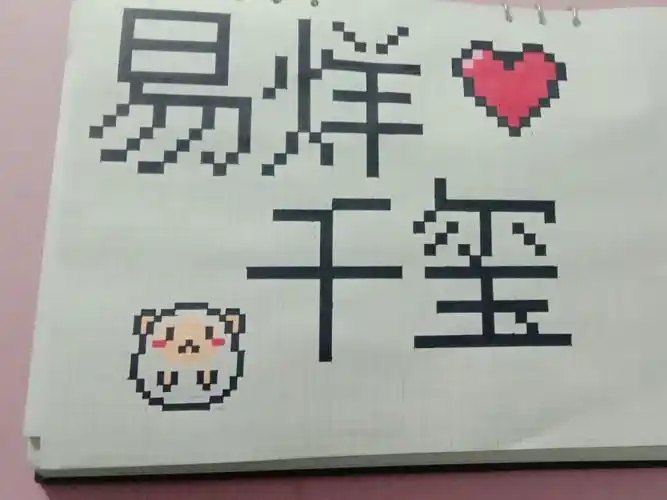 易烊
千玺